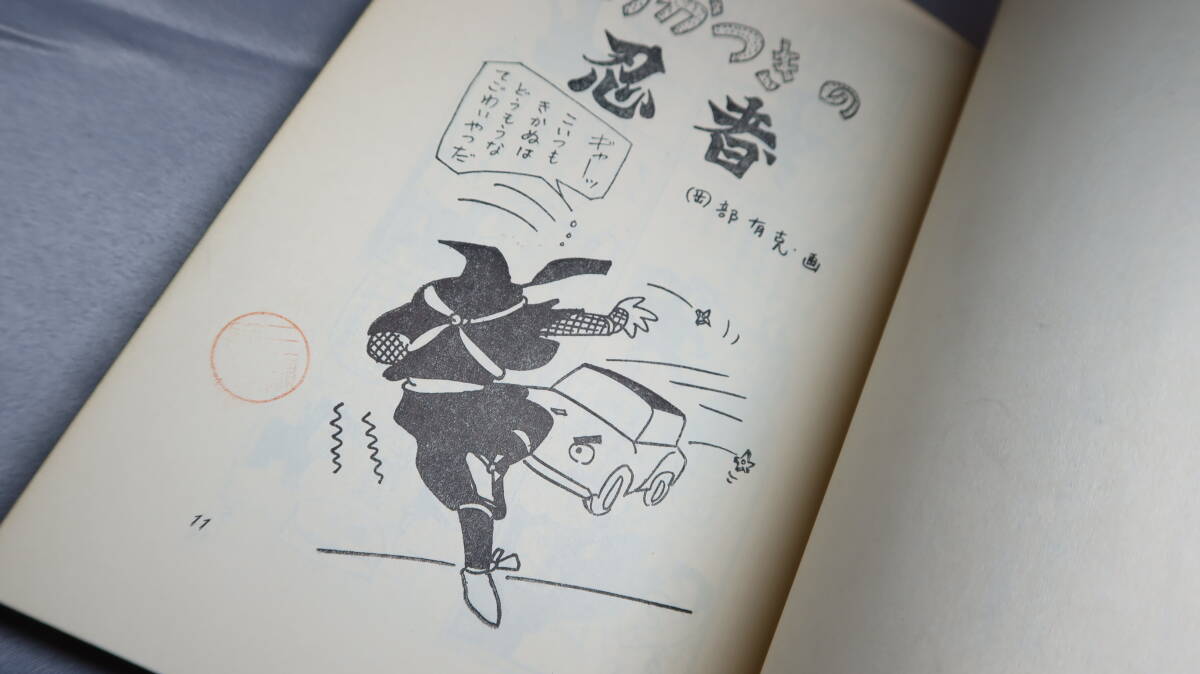 かつきの
忍者
(岡)部有克・画
ギャーッ
こいつも
きかぬは
どうもうな
てごわいやつだ
11